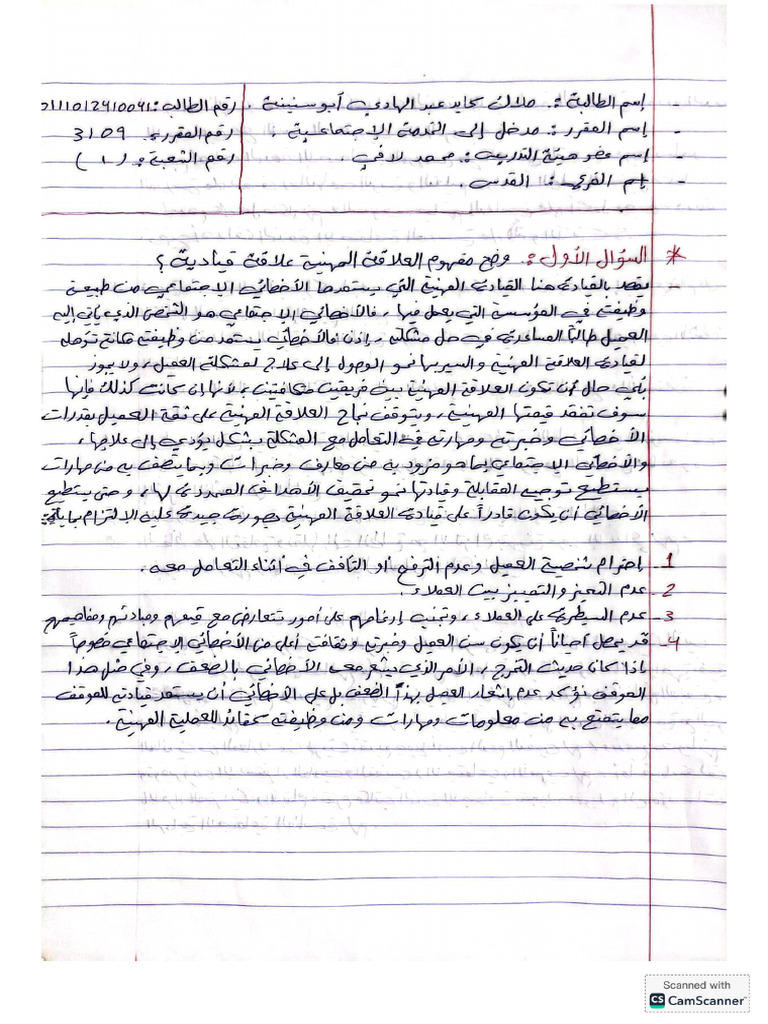 - إسم الطالبة: عبد الهادي أبوسنينة . رقم الطالب: 0111012910091
- إسم المقرر: مدخل إلى الخدمة الإجتماعية . رقم المقرر: 3109
- إسم عضو هيئة التدريس: محمد لافي . رقم الشعبة: (1)
- إسم الفرع: القدس .
* السؤال الأول: وضح مفهوم العلاقة المهنية علاقة قيادية ؟
- يقصد بالقيادة هنا القيادة المهنية التي يستمدها الأخصائي الإجتماعي من طبيعة
وظيفته في المؤسسة التي يعمل فيها، فالأخصائي الإجتماعي هو الشخص الذي يأتي إليه
العميل طالباً المساعدة في حل مشكلته، إذن فالأخصائي يستمد من وظيفته مكانة تؤهله
لقيادة العلاقة المهنية والسير بها نحو الوصول إلى علاج لمشكلة العميل، ولا يجوز
بأي حال أن تكون العلاقة المهنية بين فريقين متكافئين، لأنها إن كانت كذلك فإنها
سوف تفقد قيمتها المهنية، ويتوقف نجاح العلاقة المهنية على ثقة العميل بقدرات
الأخصائي وخبرته ومهارته في التعامل مع المشكلة بشكل يؤدي إلى علاجها،
والأخصائي الإجتماعي بما هو مزود به من معارف وخبرات وبما يتصف به من مهارات
يستطيع توجيه المقابلة وقيادتها نحو تحقيق الأهداف المحددة لها، وحتى يستطيع
الأخصائي أن يكون قادراً على قيادة العلاقة المهنية بصورة جيدة عليه الإلتزام بما يلي:
1- إحترام شخصية العميل وعدم الترفع أو التأفف في أثناء التعامل معه .
2- عدم التحيز والتمييز بين العملاء .
3- عدم السيطرة على العملاء، وتجنب إرغامهم على أمور تتعارض مع قيمهم ومبادئهم ومفاهيمهم
4- قد يحصل أحياناً أن يكون سن العميل وخبرته وثقافته أعلى من الأخصائي الإجتماعي خصوصاً
إذا كان حديث التخرج، الأمر الذي يشعر معه الأخصائي بالضعف، وفي ضل هذا
الموقف نؤكد عدم إشعار العميل بهذا الضعف بل على الأخصائي أن يستمد قيادته للموقف
مما يتمتع به من معلومات ومهارات ومن وظيفته كقائد للعملية المهنية .
Scanned with
CS CamScanner